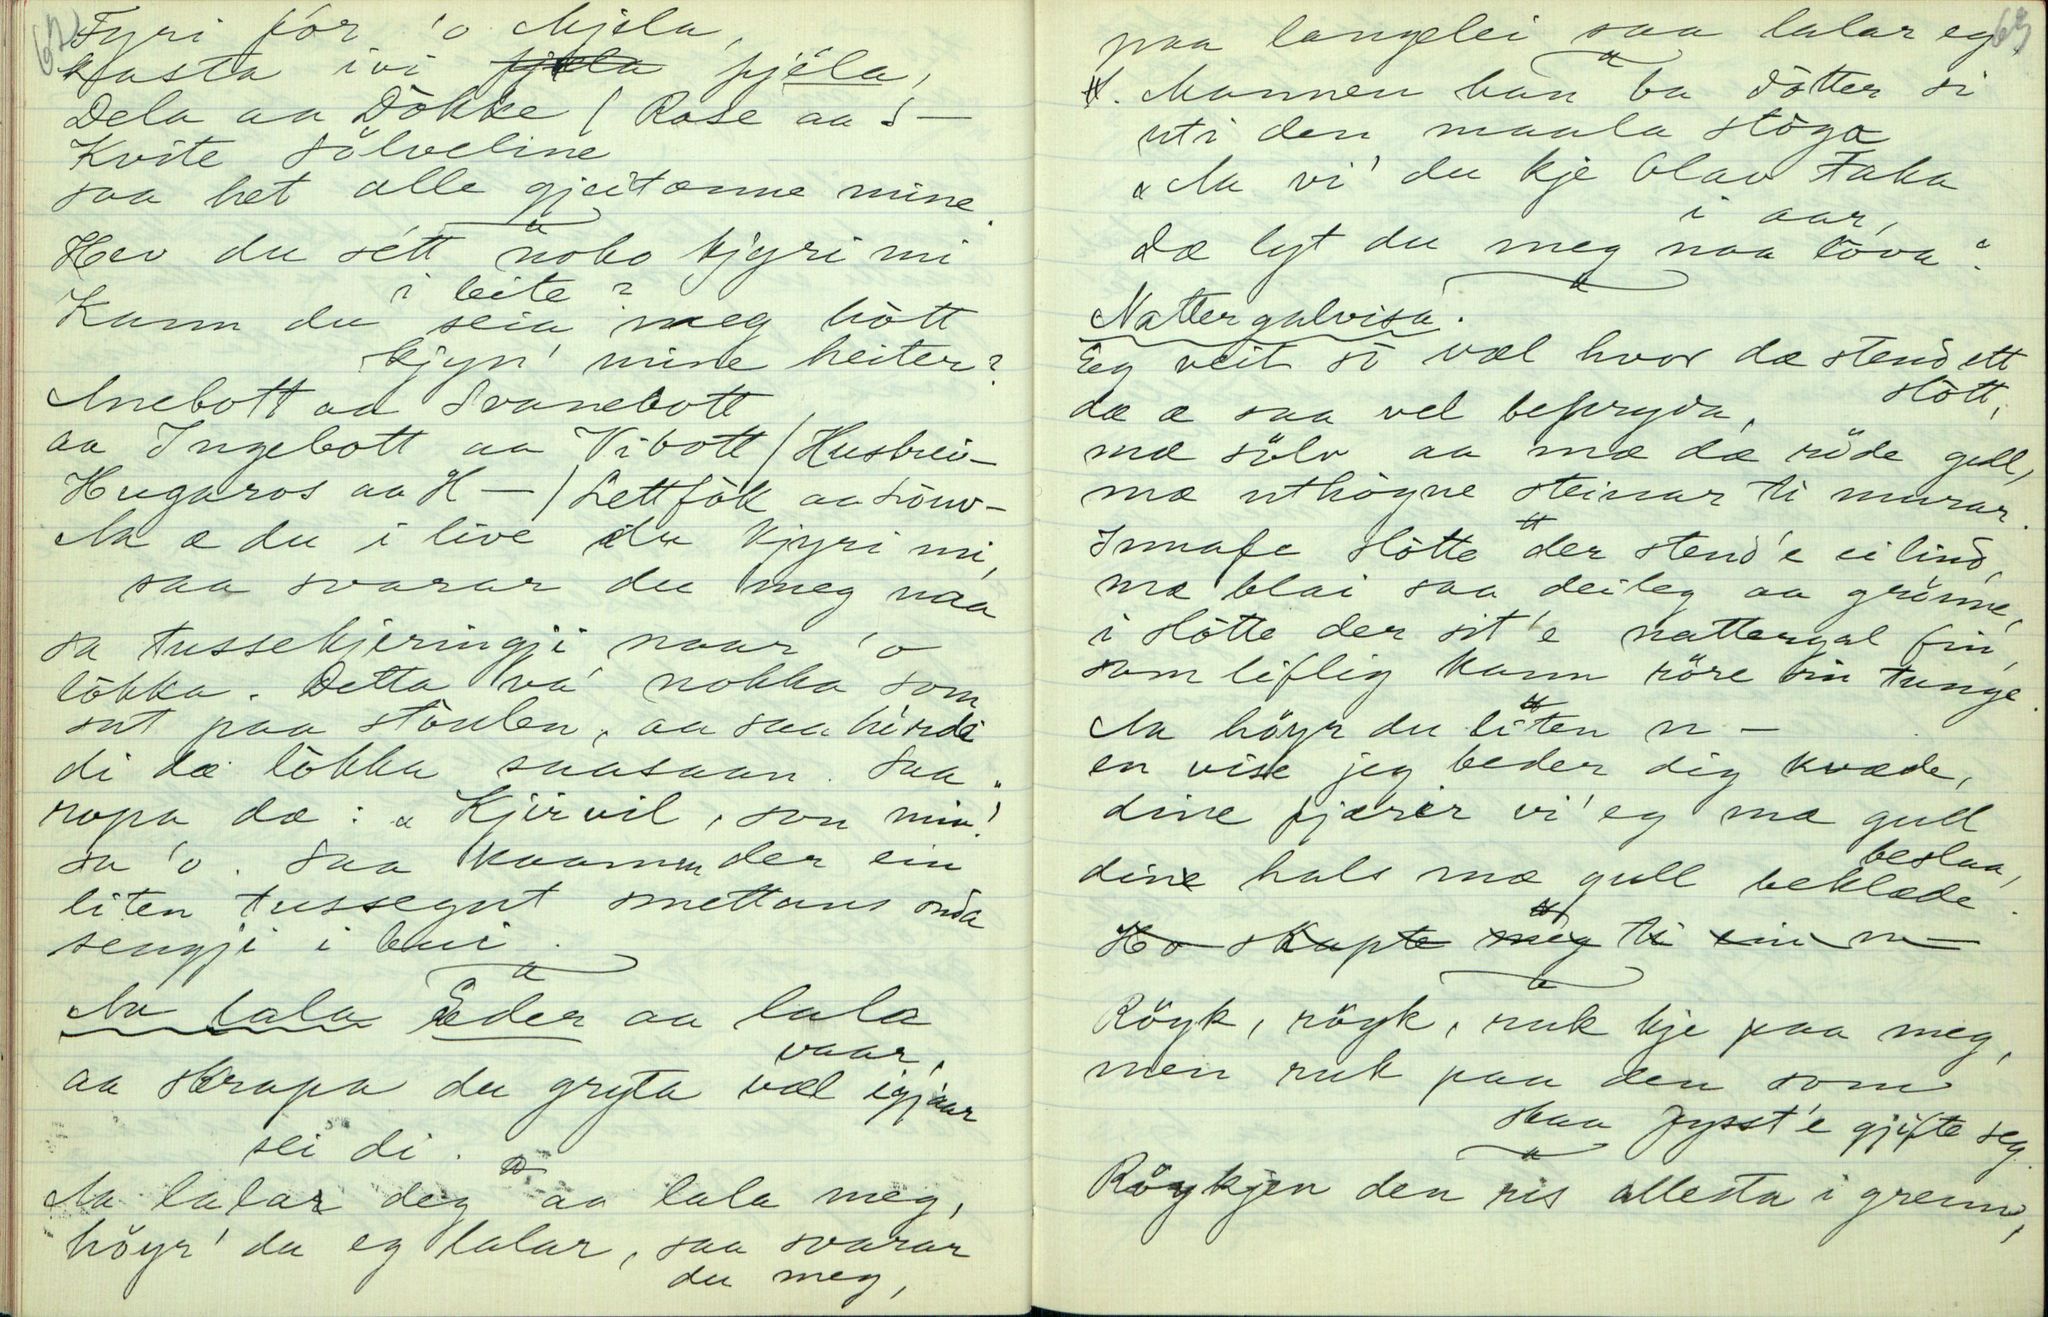 62
Fyri fór 'o Mjela,
kasta ivi fjela fjéla,
Dela aa Dökke / Rose aa S—
Kvite Sölveline
saa het alle gjeitanne mine.
Hev du sétt noko kjyri mi
i beite?
Kann du seia meg hött
kjyn' mine heiter?
Anebott aa Svanebott
aa Ingebott aa Vibott / Huskrei-
Hugaros aa H— / Lettfök aa
Aa æ du i live du kjyri mi,
saa svarar du meg naa
sa tussekjeringji naar 'o
lökka. Detta va nokka som
sat paa stöulen, aa saa hürde
di dæ lökka saasaan. Saa
ropa dæ: "Kjirvil, son min!"
sa 'o. Saa kaam der ein
liten tussegut smettans unda
sengji i bui.
Aa lala Eder aa lala
vaar,
aa skrapa du gryta væl igjaar
sei di.
Aa lalar deg aa lala meg,
höyr' du eg lalar, saa svarar
du meg,
63
paa langelei saa lalar eg.
Mannen han ba dötter si
uti den maala stögo
"Aa vi' du kje Olav taka
i aar,
dæ lyt du meg naa lova".
Nattergalvisa.
Eg veit so væl hvor dæ stend ett
slott,
dæ æ saa vel bepryda,
mæ sölv aa mæ dæ röde gull,
mæ uthögne steinar ti murar.
Innafe slötte der stend'e ei lind,
mæ blai saa deileg aa grönne,
i slötte der sit'e nattergal fin,
som liflig kann röre sin tunge.
Aa höyr du liten n—
en vise jeg beder dig kvæde,
dine fjærer vi' eg mæ gull
beslaa,
dine hals mæ gull beklæde.
Ho skapte meg ti ein n—
Röyk, röyk, ruk kje paa meg,
men ruk paa den som
skaa fysst'e gjifte seg.
Röykjen den ris allesta i grenn,